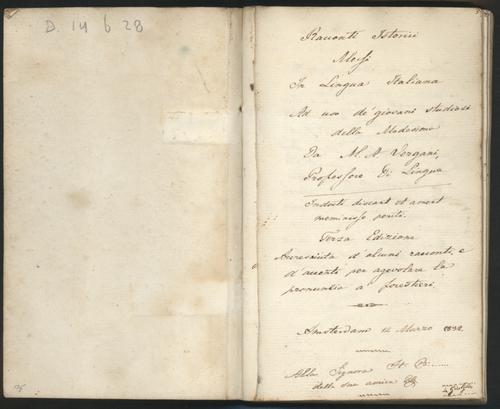 D. 14 b 28
Racconti Istorici
Messi
In Lingua Italiana
Ad uso de' giovani studiosi
della Medesima
Da M. A Vergani,
Professore Di Lingua
Indocti discant et ament
meminisse periti.
Terza Edizione
Accresciuta d'alcuni racconti, e
d'accenti per agevolare la
pronuncia a' forestieri.
Amsterdam 12 Marzo 1832.
Alla Signora
della sua amica